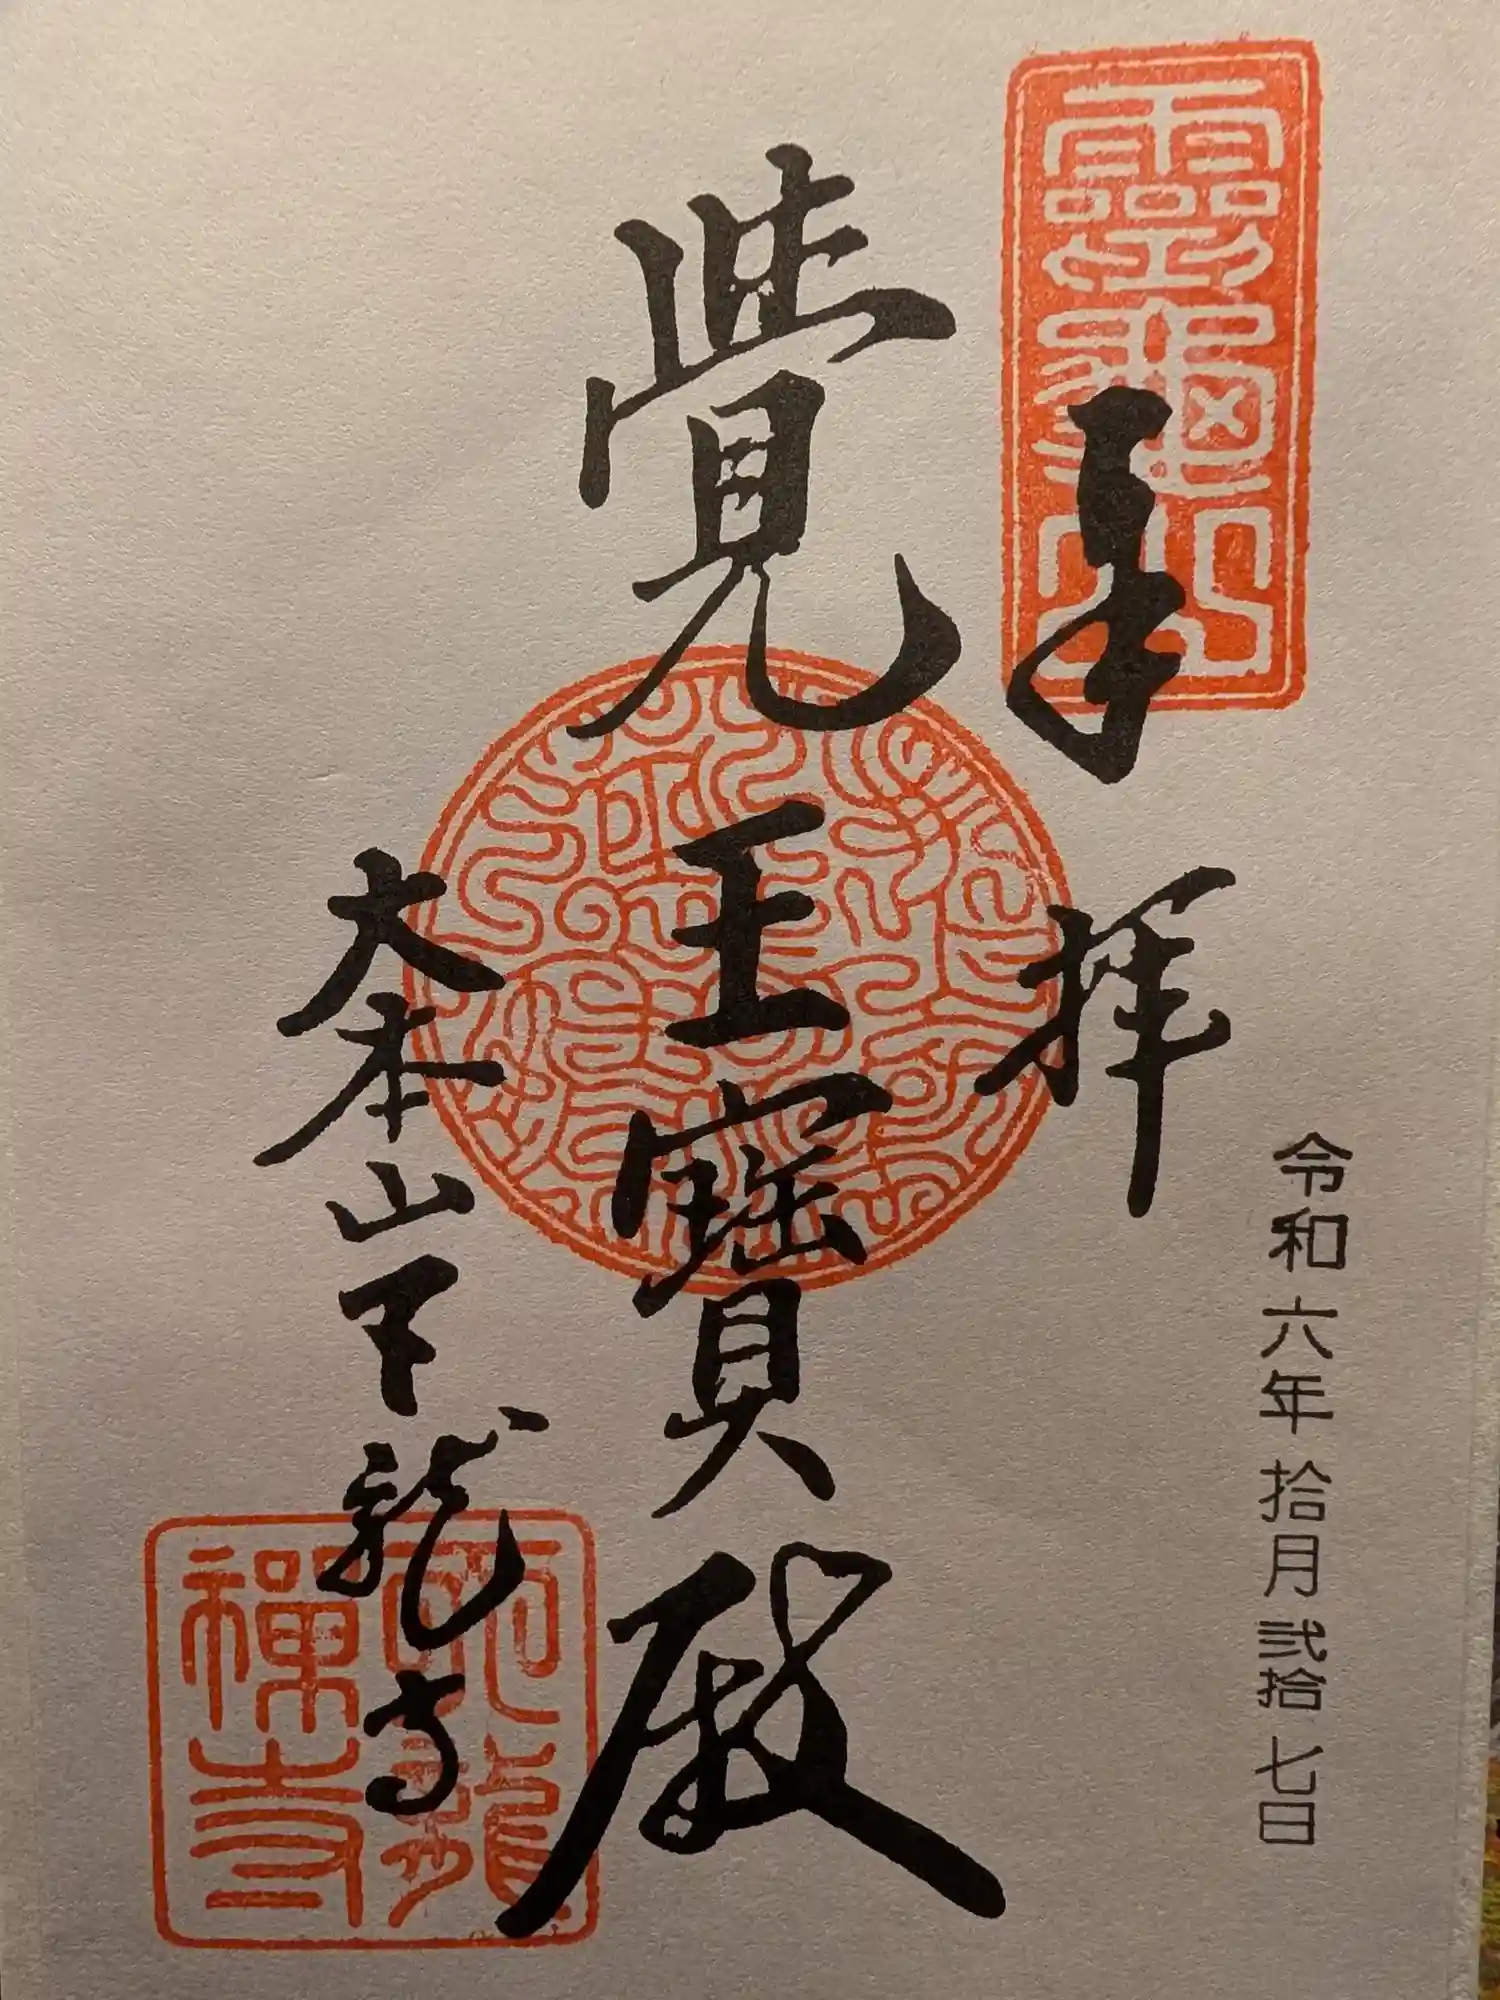 靈龜山
奉拝
令和六年拾月弐拾七日
覺王寶殿
大本山天龍寺
天龍禪寺